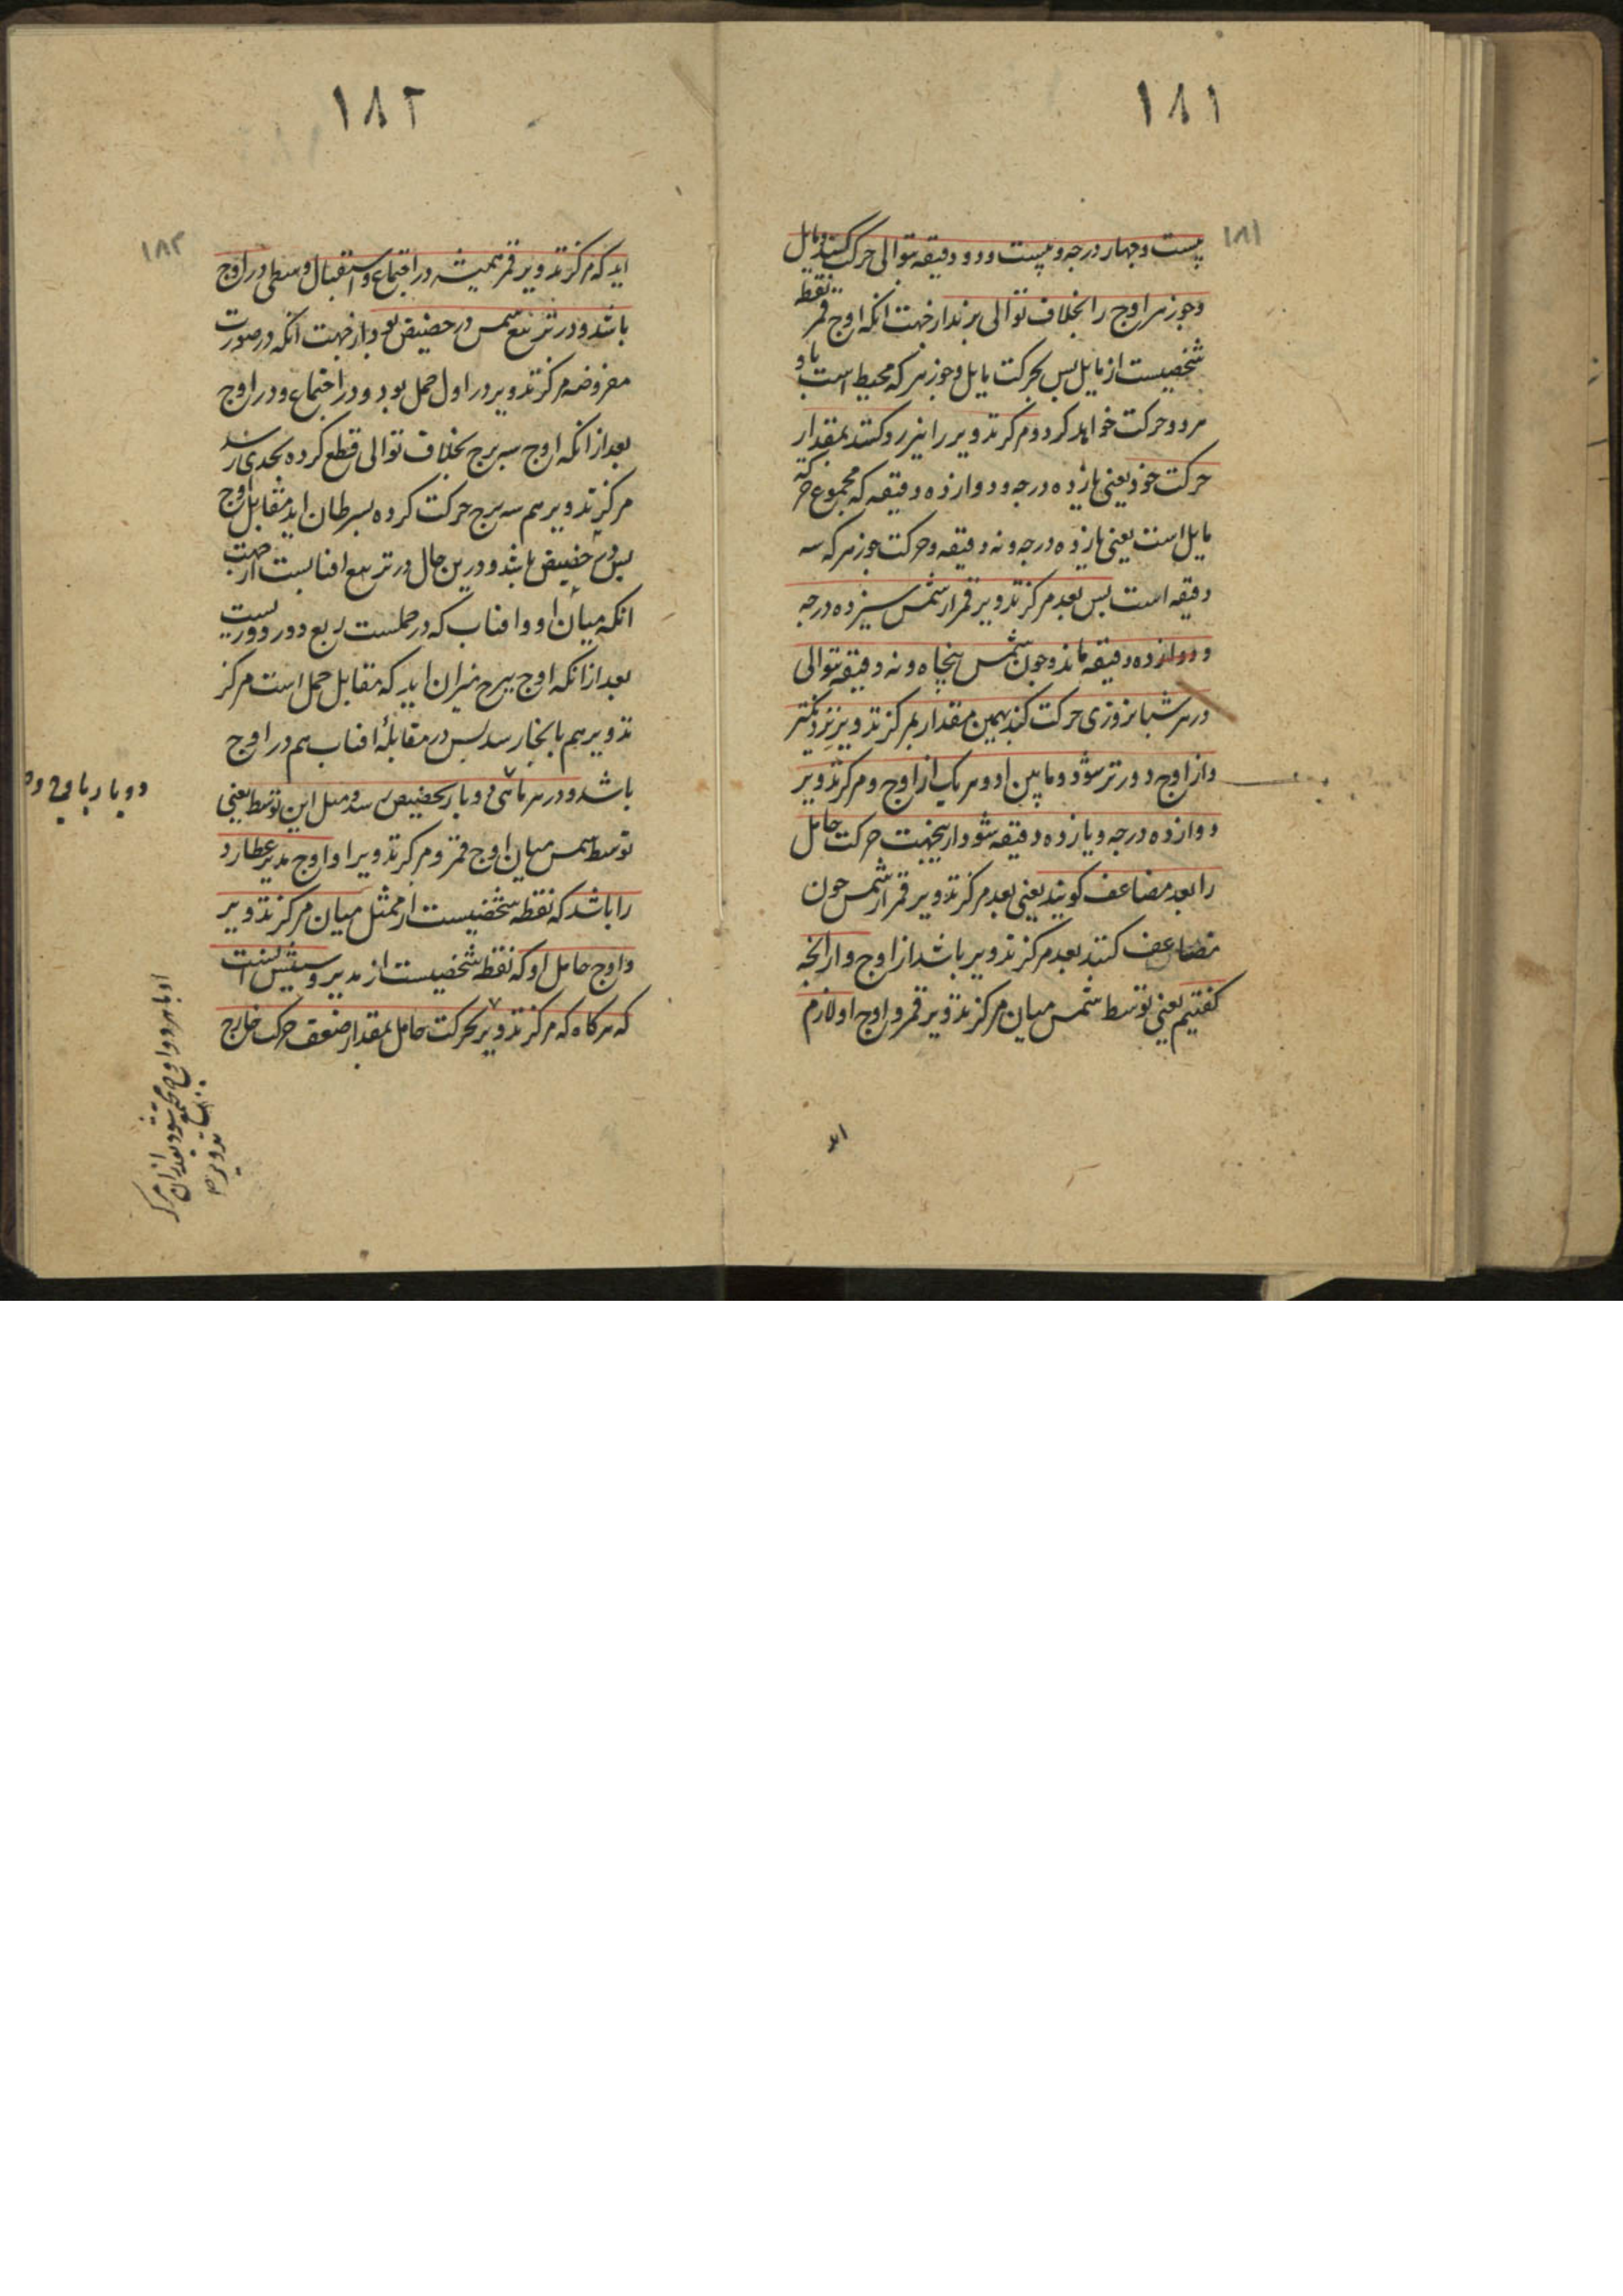 ۱۸۱
۱۸۱
بیست و چهار درجه و بیست و دو دقیقه بتوالی حرکت کند و مایل
و جوزهر اوج را بخلاف توالی برند از جهت انکه اوج قمر نقطه
شخصیست از مایل پس بحرکت مایل و جوزهر که محیط است باو
مر دو حرکت خواهد کرد و مرکز تدویر را نیز رد کنند بمقدار
حرکت خود یعنی یازده درجه و دوازده دقیقه که مجموع حرکة
مایل است یعنی یازده درجه و نه دقیقه و حرکت جوزهر که سه
دقیقه است پس بعد مرکز تدویر قمر از شمس سیزده درجه
و دوازده دقیقه ماند و چون شمس پنجاه و نه دقیقه بتوالی
در هر شبانروزی حرکت کند بهمین مقدار بمرکز تدویر نزدیکتر
و از اوج دورتر شود و ما بین او و هر یک از اوج و مرکز تدویر
دوازده درجه و یازده دقیقه شود و ازینجهت حرکت حامل
را بعد مضاعف کویند یعنی بعد مرکز تدویر قمر از شمس چون
مضاعف کنند بعد مرکز تدویر باشد از اوج و از انچه
کفتیم یعنی توسط شمس میان مرکز تدویر قمر و اوج او لازم
اید
۱۸۲
۱۸۲
اید که مرکز تدویر قمر همیشه در اجتماع و استقبال وسطی در اوج
باشد و در تربیع شمس در حضیض بود از جهت انکه در صورت
مفروضه مرکز تدویر در اول حمل بود و در اجتماع و در اوج
بعد از انکه اوج سه برج بخلاف توالی قطع کرده بجدی رسد
مرکز تدویر هم سه برج حرکت کرده بسرطان اید مقابل اوج
پس در حضیض باشد و درین حال در تربیع افتابست از جهت
انکه میان او و افتاب که در حملست ربع دور دوریست
بعد از انکه اوج ببرج میزان اید که مقابل حمل است مرکز
تدویر هم بانجا رسد پس در مقابلهٔ افتاب هم در اوج
باشد و در هر ماهی دو بار بحضیض رسد و مثل این توسط یعنی
توسط شمس میان اوج قمر و مرکز تدویر او اوج مدیر عطارد
را باشد که نقطه شخصیست از ممثل میان مرکز تدویر
و اوج حامل او که نقطه شخصیست از مدیر و سببش اینست
که هرکاه که مرکز تدویر بحرکت حامل بمقدار ضعف حرکت خارج
دو بار باوج و